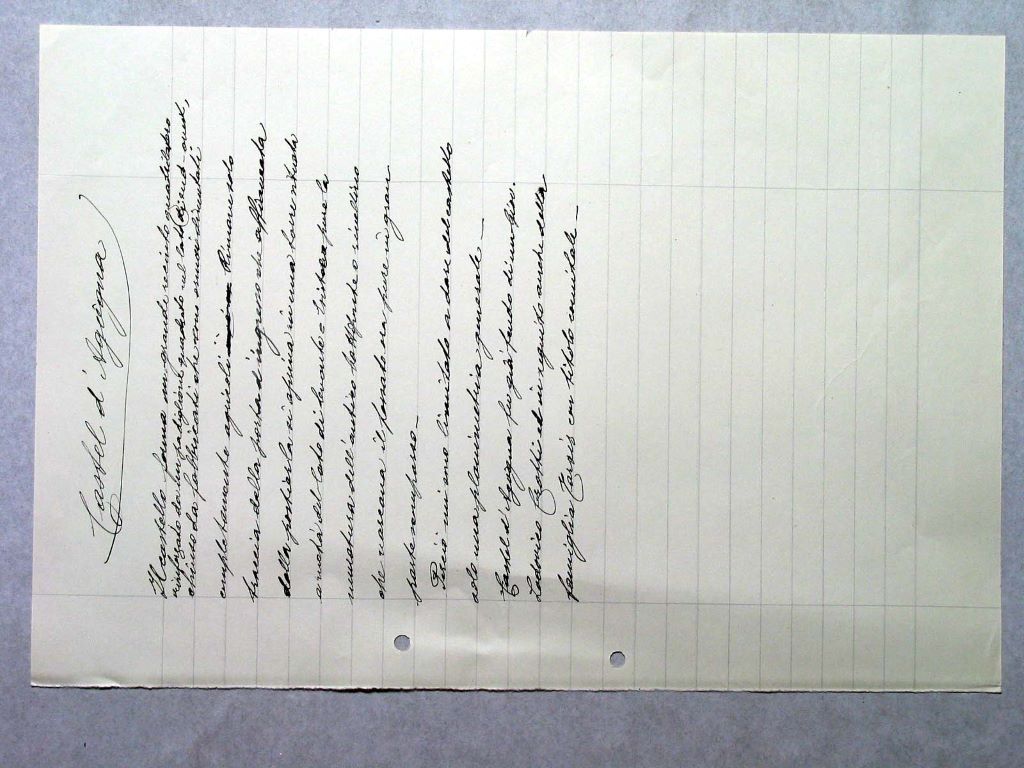 Castel d'Agogna
Il castello forma un grande recinto quadrilatero
rinforzato da un padiglione quadrato nel lato di sud-ovest,
chiuso da fabbricati che sono ormai diventati
completamente agricoli. Rimane solo
traccia della porta d'ingresso che affiancata
dalla postierla si apriva in una torre entrata
a metà del lato di levante e trovasi pure la
muratura dell'antico battiponte e rivellino
che varcava il fossato ora pure in gran
parte scomparso -
Perciò mi sono limitato a dare del castello
solo una planimetria generale -
Castel d'Agogna fu già feudo di un fisc.
Lodovico Crotti ed in seguito anche della
famiglia Tarsis con titolo comitale -